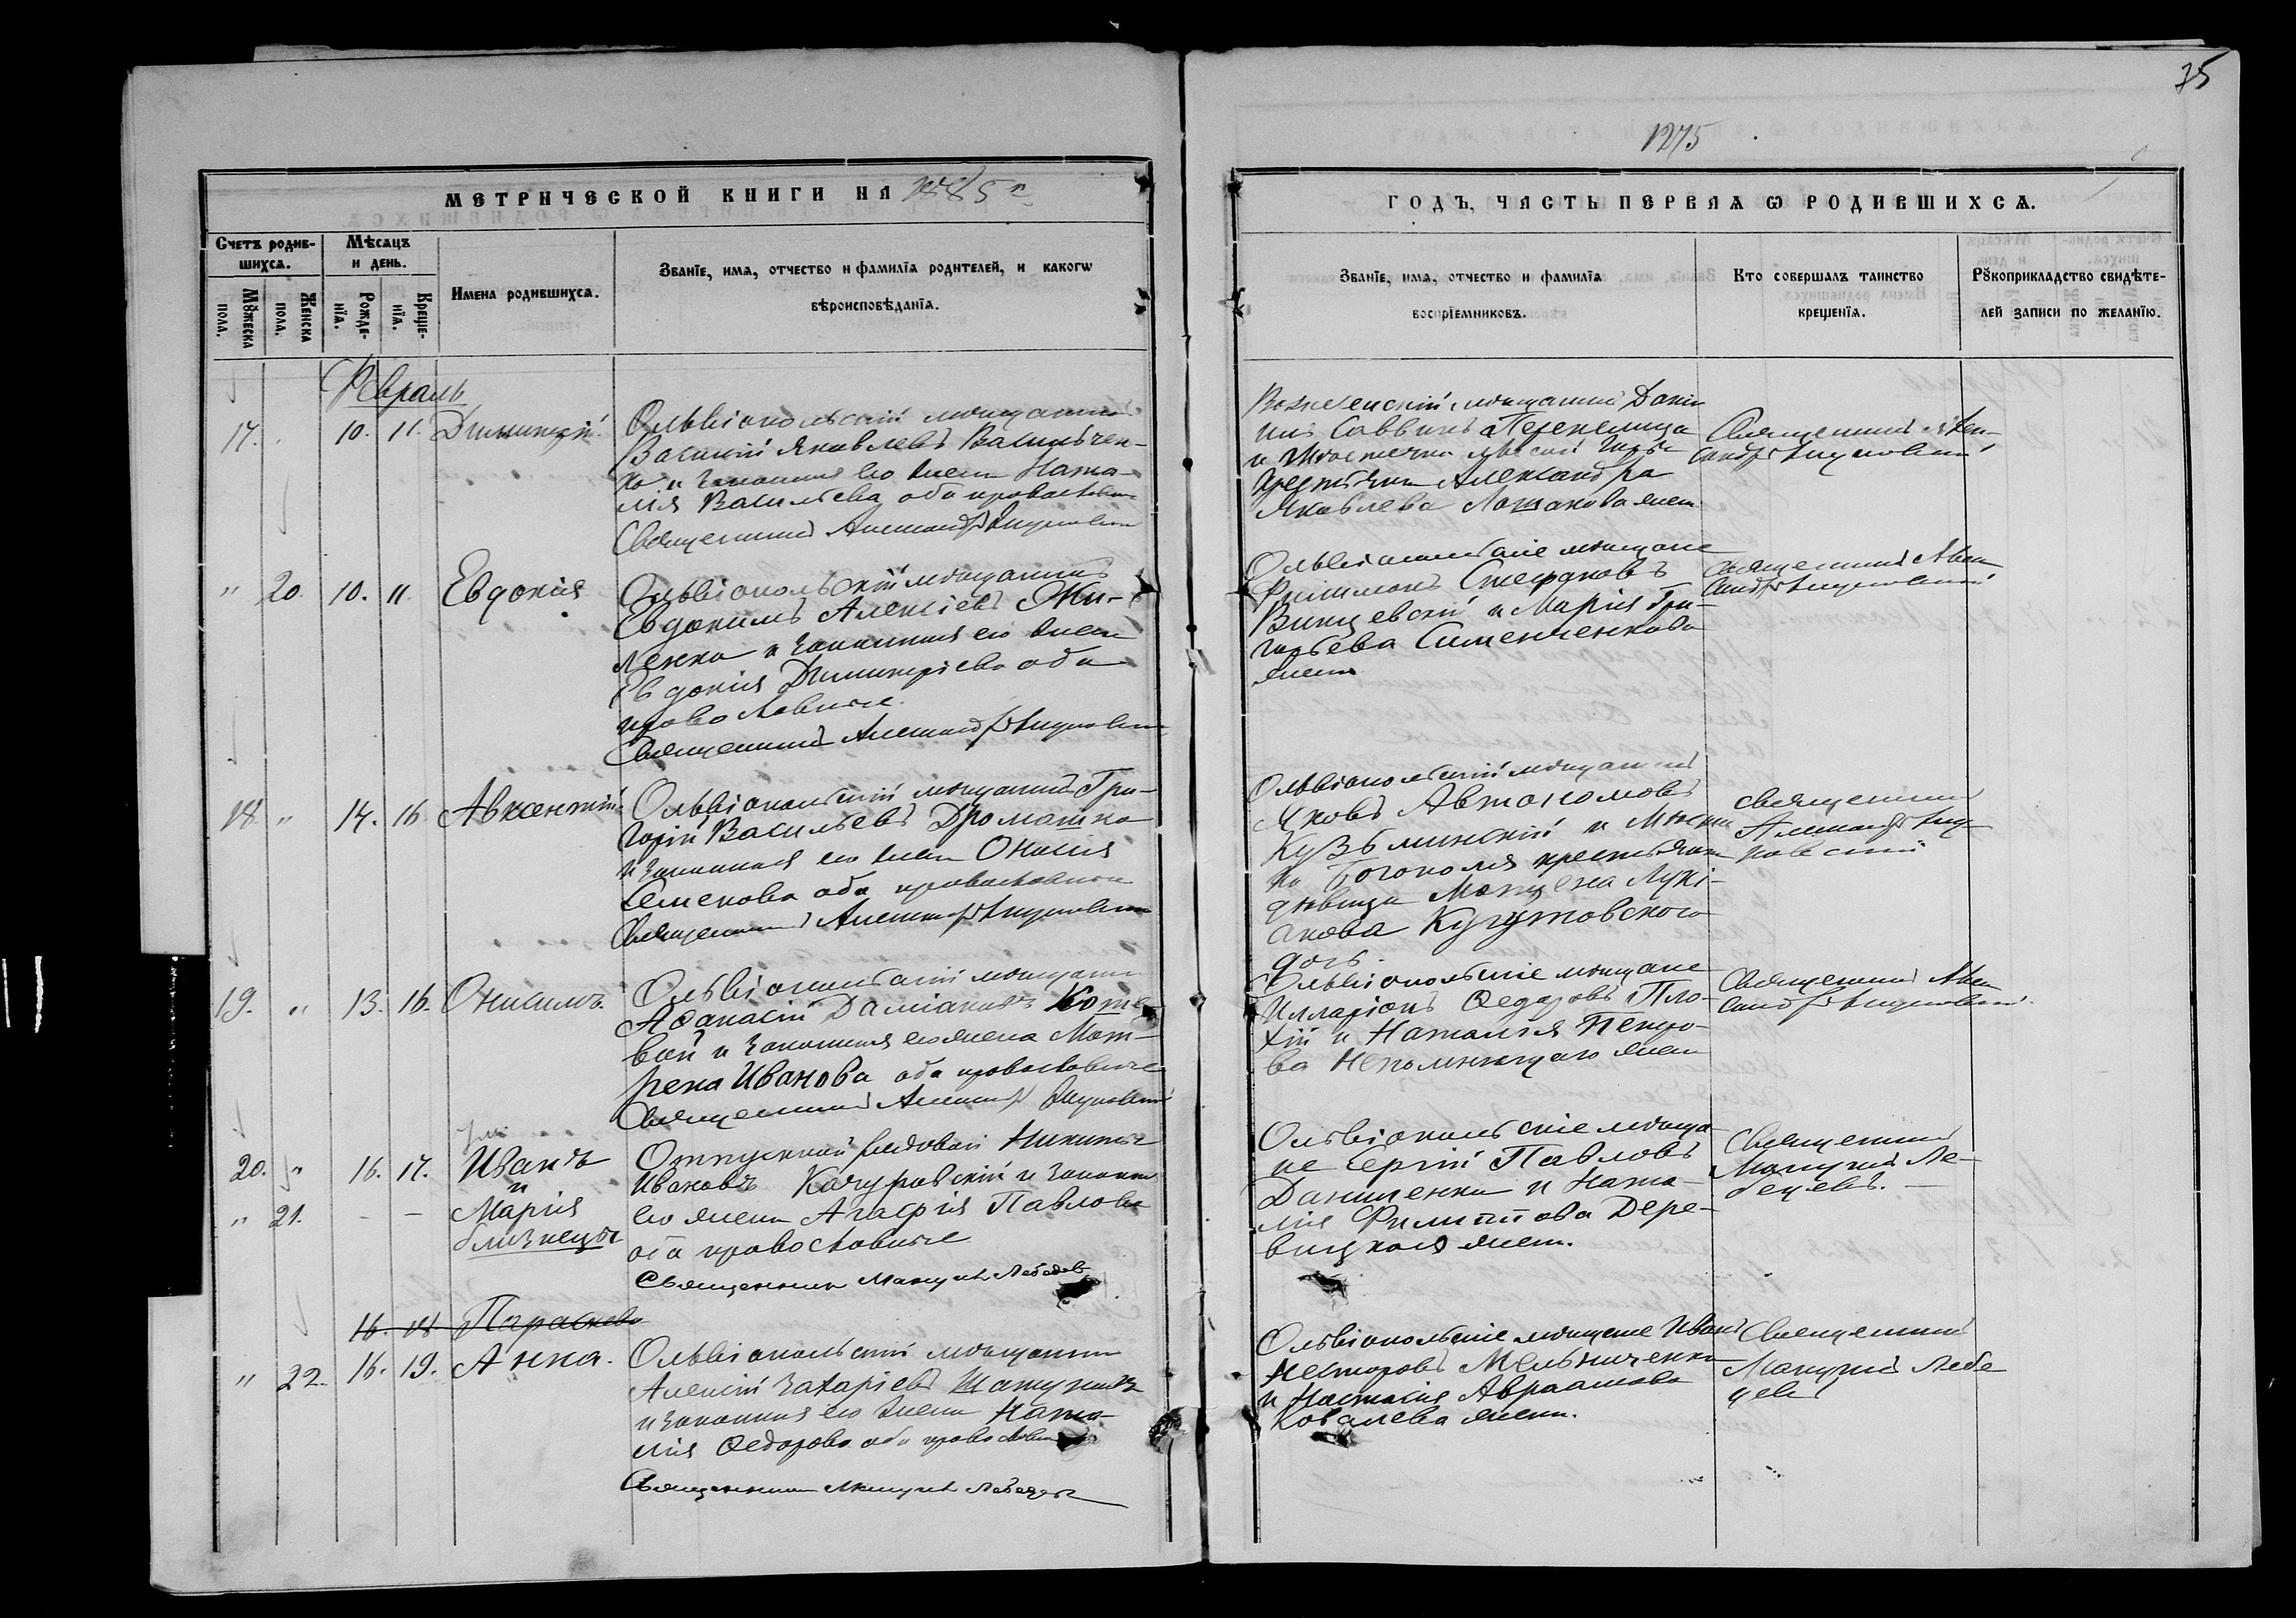 75
1275
МЕТРИЧЕСКОЙ КНИГИ НА 1885 г.
ГОДЪ, ЧАСТЬ ПЕРВАЯ Ѡ РОДИВШИХСѦ.
Счетъ родив-
шихсѧ.
Мѣсѧцъ
и день.
Мꙋжеска
пола.
Женска
пола.
Рожде-
нїѧ.
Креще-
нїѧ.
Имена родившихсѧ.
Званїе, имѧ, отчество и фамилїѧ родителей, и какогѡ
вѣроисповѣданїѧ.
Званїе, имѧ, отчество и фамилїѧ
воспрїемниковъ.
Кто совершалъ таинство
крещенїѧ.
Рꙋкоприкладство свидѣте-
лей записи по желанїю.
Февраль
17. 10. 11. Димитрій.
Ольвіопольскій мѣщанинъ
Василій Яковлевъ Васильчен-
ко и законная его жена Ната-
лія Васильева оба православные
Священникъ Александръ
Вознесенскій мѣщанинъ Дани
илъ Саввинъ Перепелица
и
Александра
Яковлева жена
Священникъ Алек-
сандръ
" 20. 10. 11. Евдокія
Ольвіопольскій мѣщанинъ
Евдокимъ Алексіевъ Жи-
ленко и законная его жена
Евдокія Димитріева оба
православные.
Священникъ Александръ
Ольвіопольскіе мѣщане
Филимонъ Стефановъ
Винцевскій и Марія Гри-
горьева Сименченкова
жена
Священникъ Алек
сандръ
18. " 14. 16. Авксентій
Ольвіопольскій мѣщанинъ Гри-
горій Васильевъ Дромашко
и законная его жена Онисія
Семенова оба православные
Священникъ Александръ
Ольвіопольскій мѣщанинъ
Яковъ Автономовъ
Кузьминскій и
ка Богополя крестьянка
дѣвица Луки-
анова
дочь.
Священникъ
Александръ
19. " 13. 16. Онисимъ.
Ольвіопольскій мѣщанинъ
Аѳанасій Даміановъ
вой и законная его жена Мат-
рена Иванова оба православные
Священникъ
Ольвіопольскіе мѣщане
Илларіонъ Ѳедоровъ Пло-
хій и Наталія Петро-
ва Непомнющаго жена
Священникъ Алек
сандръ
20. " 16. 17. Иванъ
и
" 21. – – Марія
близнецы
Отпускной рядовой Никита
Ивановъ Качуровскій и законная
его жена Агафія Павлова
оба православные
Священникъ Мануилъ Лебедевъ
Ольвіопольскіе мѣща
не Сергій Павловъ
Даниленко и Ната-
лія Филиппова Дере-
вицкая жена.
Священникъ
Мануилъ Ле-
бедевъ. –
16. 18. Параскева
" 22. 16. 19. Анна.
Ольвіопольскій мѣщанинъ
Алексій Захаріевъ
и законная его жена Ната-
лія Ѳедорова оба православные
Священникъ Мануилъ Лебедевъ
Ольвіопольскіе мѣщане Иванъ
Несторовъ Мельниченко
и Настасія Авраамова
Ковалева жена.
Священникъ
Мануилъ Лебе
девъ